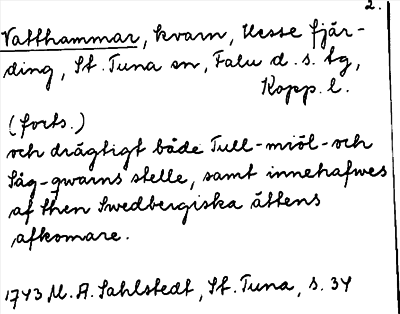 2.
Vatthammar, kvarn, Uesse fjär-
ding, St. Tuna sn, Falu d. s. tg,
Kopp. l.
(forts.)
och drägtigt både Tull-miöl-och
Såg-qwarns stelle, samt innehafwes
af then Swedbergiska ättens
afkomare.
1743 M. A. Sahlstedt, St. Tuna, s. 34